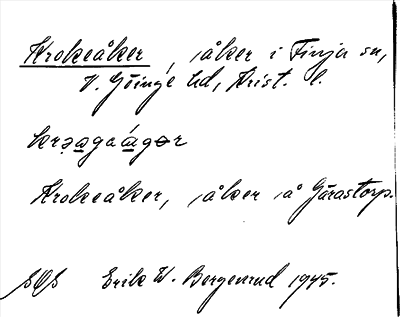 Krokeåker, åker i Finja sn,
V. Göinge hd, Krist. l.
Krokeåker, åker å Gårastorp.
Erik W. Bergenrud 1945.